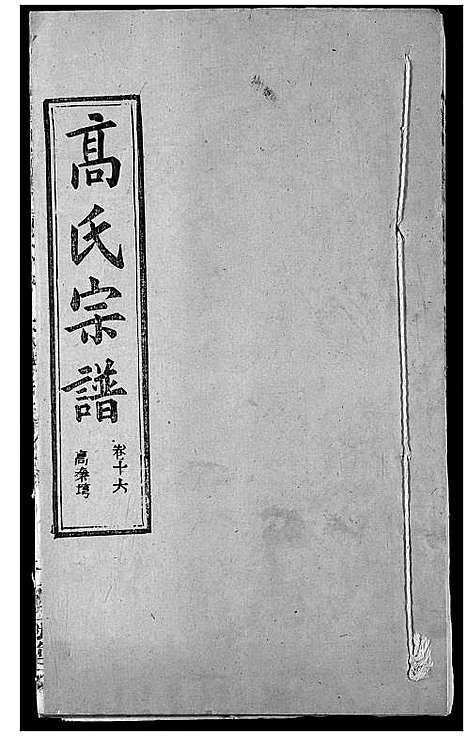 髙氏宗譜
卷十六
高秦塆